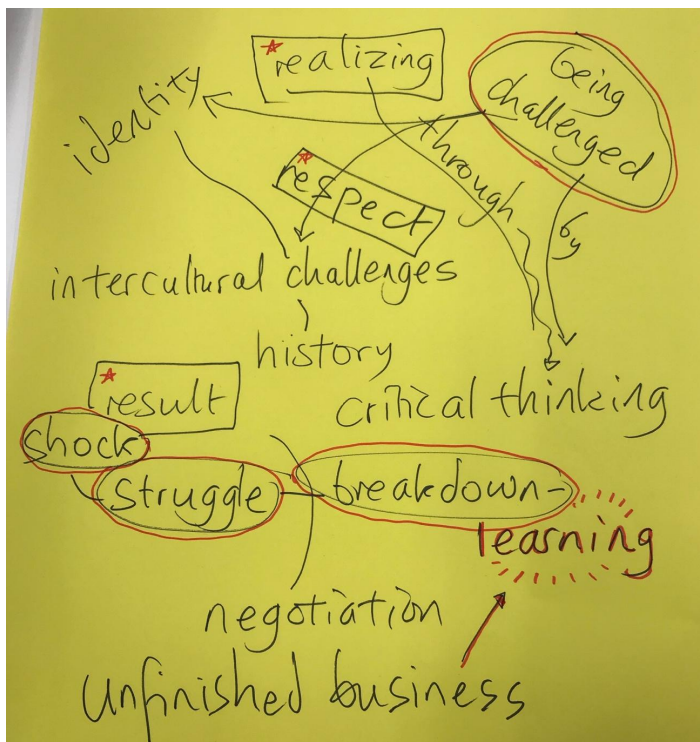 realizing
being
challenged
identity
through
respect
by
intercultural challenges
history
result
critical thinking
shock
struggle
breakdown-
learning
negotiation
unfinished business